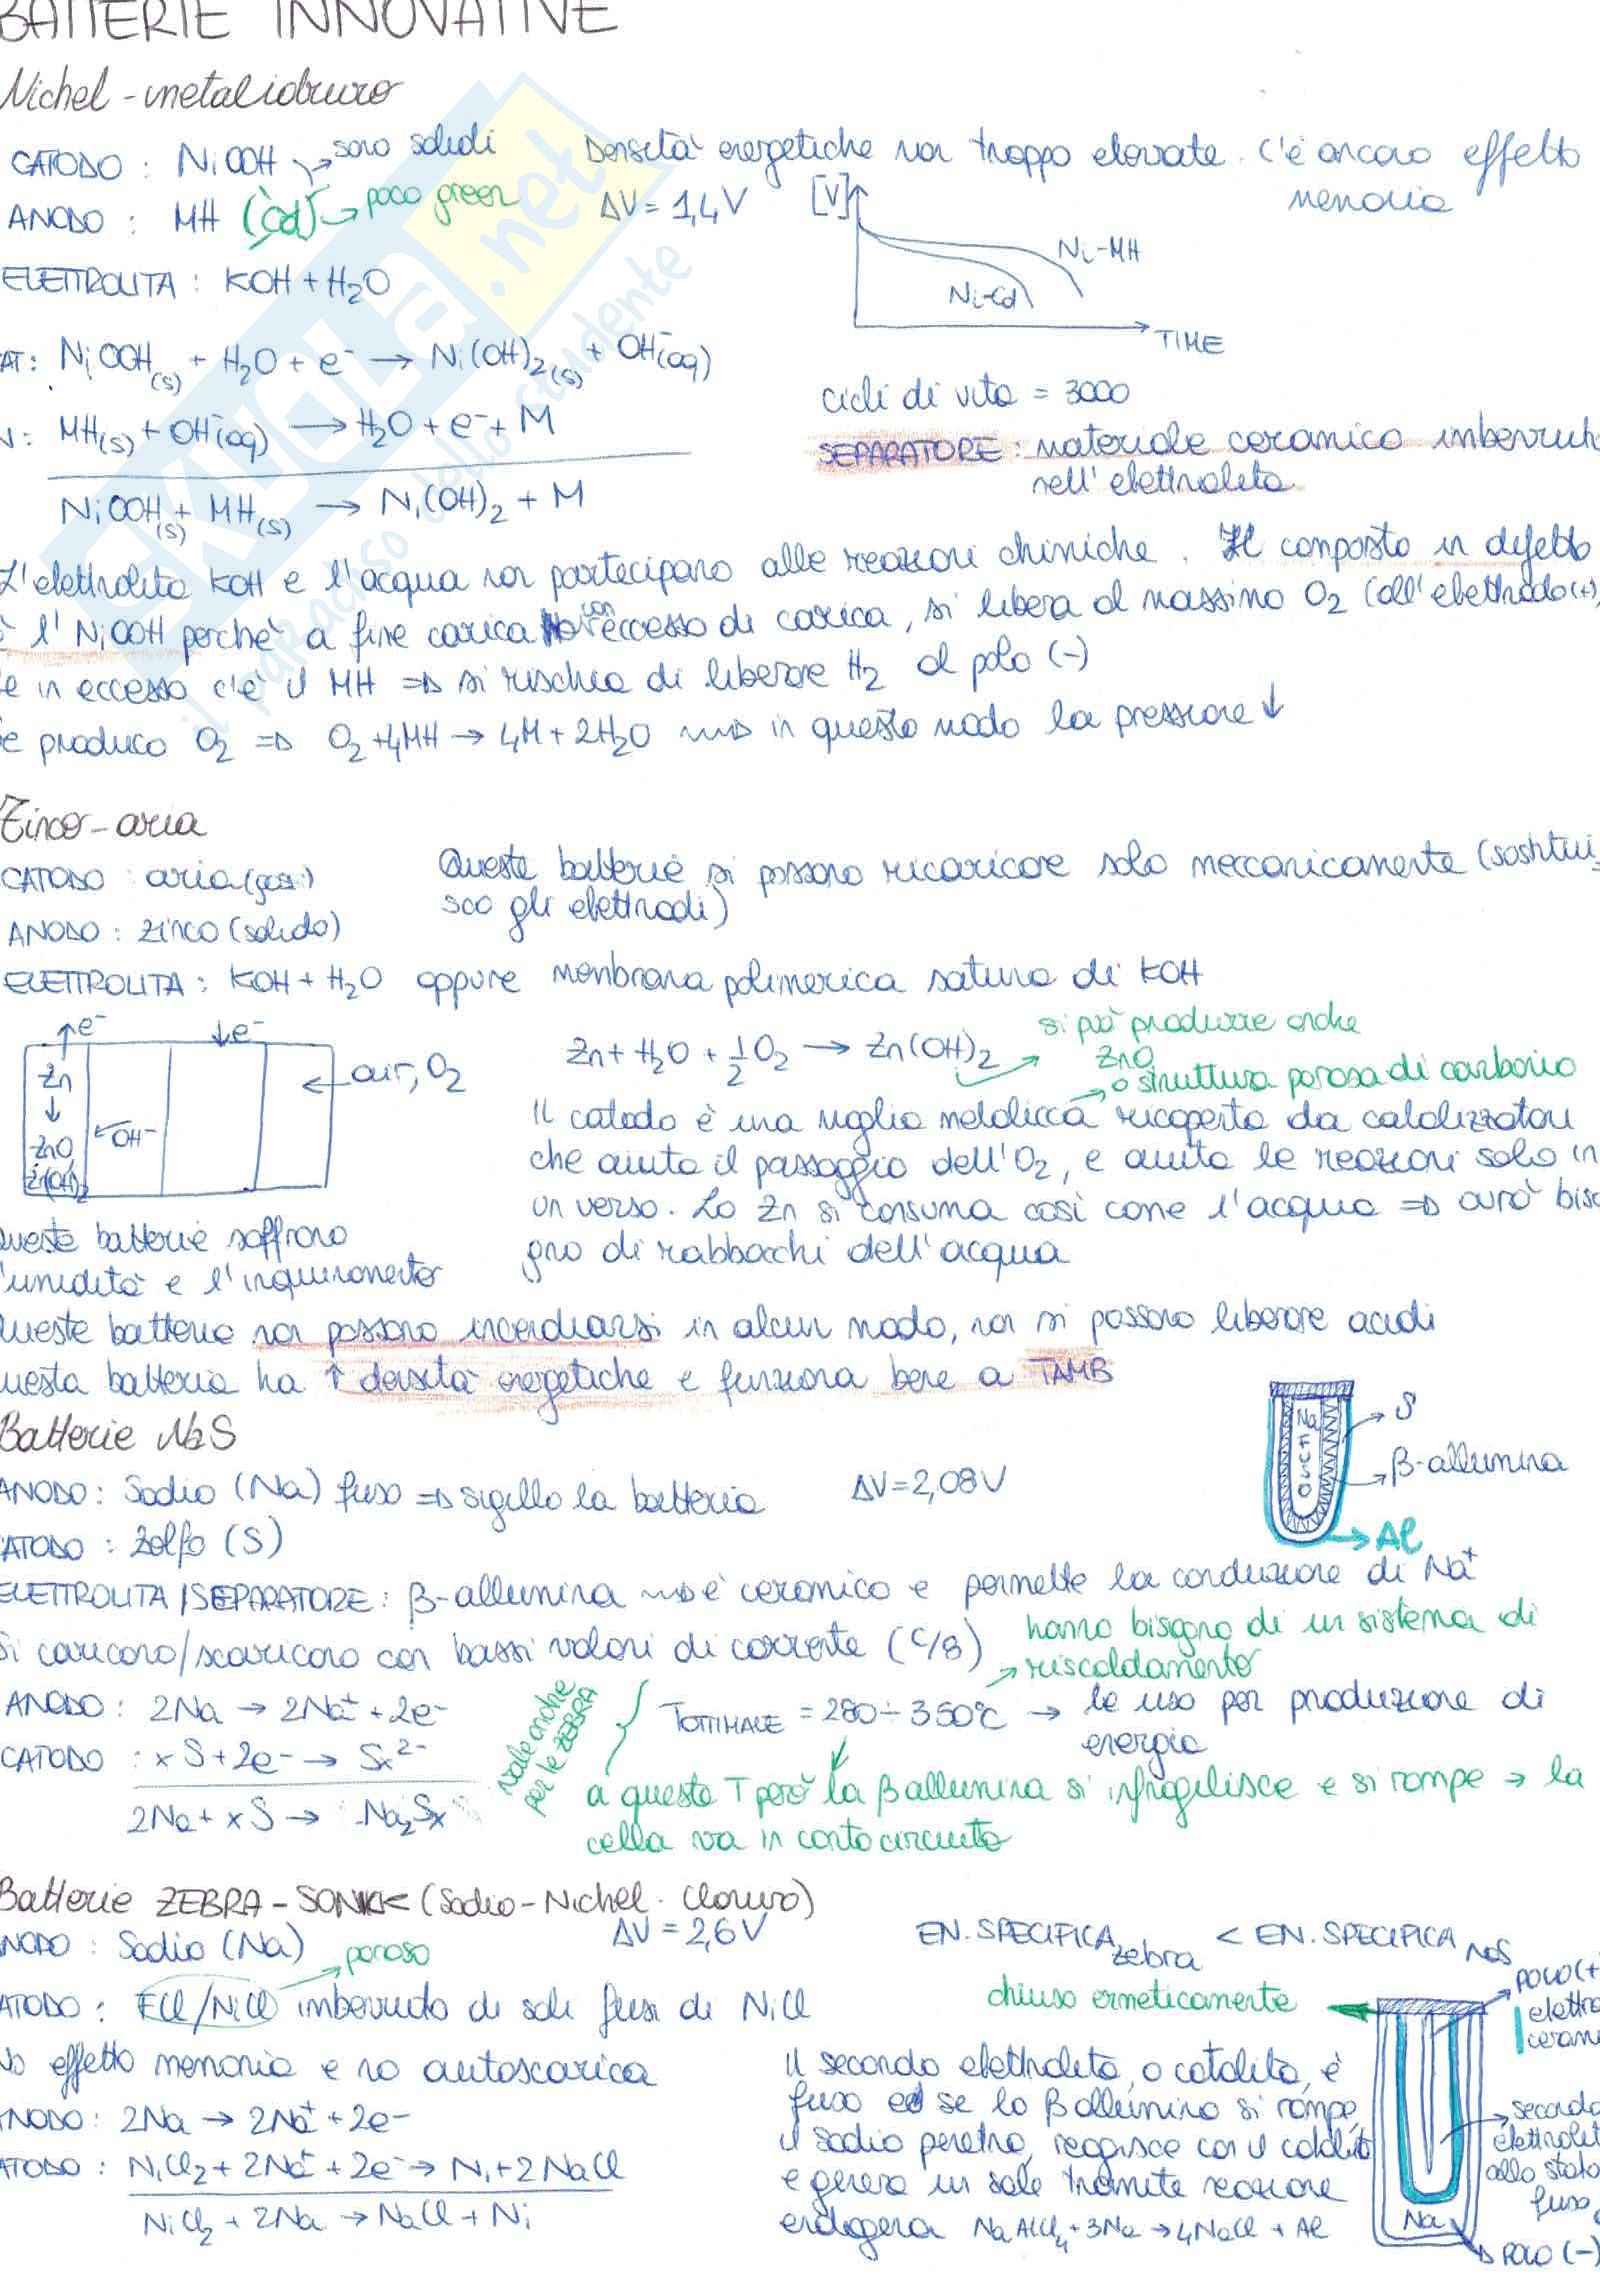 BATTERIE INNOVATIVE
Nichel-metalidruro
CATODO: NiOOH → sono solidi
Densità energetiche non troppo elevate. C'è ancora effetto memoria
ANODO: MH (Cd) → poco green
ΔV = 1,4V
[V]
Ni-MH
Ni-Cd
TIME
ELETTROLITA: KOH + H2O
AT: NiOOH(s) + H2O + e- → Ni(OH)2(s) + OH-(aq)
N: MH(s) + OH-(aq) → H2O + e- + M
NiOOH(s) + MH(s) → Ni(OH)2 + M
cicli di vita = 3000
SEPARATORE: materiale ceramico imbevut
nell'elettrolita
L'elettrolita KOH e l'acqua non partecipano alle reazioni chimiche. Il composto in difetto
è l'NiOOH perché a fine carica con eccesso di carica, si libera al massimo O2 (all'elettrodo(+)
e in eccesso c'è il MH ⇒ si rischia di liberare H2 al polo (-)
e produco O2 ⇒ O2 + 4MH → 4M + 2H2O ⇒ in questo modo la pressione ↓
Zinco-aria
CATODO: aria (gas)
ANODO: zinco (solido)
Queste batterie si possono ricaricare solo meccanicamente (sostitui-
sco gli elettrodi)
ELETTROLITA: KOH + H2O oppure membrana polimerica satura di KOH
↑e-
↓e-
Zn
↓
ZnO
Zn(OH)2
←OH-
← air, O2
Zn + H2O + 1/2 O2 → Zn(OH)2 → si può produrre anche
ZnO
→ o struttura porosa di carbonio
Il catodo è una maglia metallica ricoperta da catalizzatori
che aiuta il passaggio dell'O2, e aiuta le reazioni solo in
un verso. Lo Zn si consuma così come l'acqua ⇒ avrò biso
gno di rabbocchi dell'acqua
ueste batterie soffrono
l'umidità e l'inquinamento
ueste batterie non possono incendiarsi in alcun modo, non si possono liberare acidi
uesta batteria ha ↑ densità energetiche e funziona bene a TAMB
Batterie NaS
ANODO: Sodio (Na) fuso ⇒ sigillo la batteria
ΔV = 2,08V
Na
→ S
→ β-allumina
→ Al
ATODO: Zolfo (S)
ELETTROLITA/SEPARATORE: β-allumina ⇒ è ceramico e permette la conduzione di Na+
Si caricano/scaricano con bassi valori di corrente (C/8)
hanno bisogno di un sistema di
→ riscaldamento
ANODO: 2Na → 2Na+ + 2e-
CATODO: xS + 2e- → Sx2-
2Na + xS → Na2Sx
vale anche
per le ZEBRA
TOTTIMALE = 280÷350°C → le uso per produzione di
energia
a queste T però la β allumina si infragilisce e si rompe → la
cella va in cortocircuito
Batterie ZEBRA - (Sodio-Nichel-Cloruro)
NODO: Sodio (Na)
ΔV = 2,6V
EN. SPECIFICA zebra < EN. SPECIFICA NaS
→ poroso
ATODO: FCl/NiCl imbevuto di sali fusi di NiCl
chiuso ermeticamente
No effetto memoria e no autoscarica
ANODO: 2Na → 2Na+ + 2e-
ATODO: NiCl2 + 2Na+ + 2e- → Ni + 2NaCl
NiCl2 + 2Na → NaCl + Ni
Il secondo elettrolita, o catolita, è
fuso ed se la β allumina si rompe,
il sodio penetra, reagisce con il catolit
e genera un sale tramite reazione
endogena NaAlCl4 + 3Na → 4NaCl + Al
POLO (+
elettro
ceram
secondo
elettrolit
allo stato
fuso
Na
POLO (-)
SKUOLA.net
il paradiso dello studente